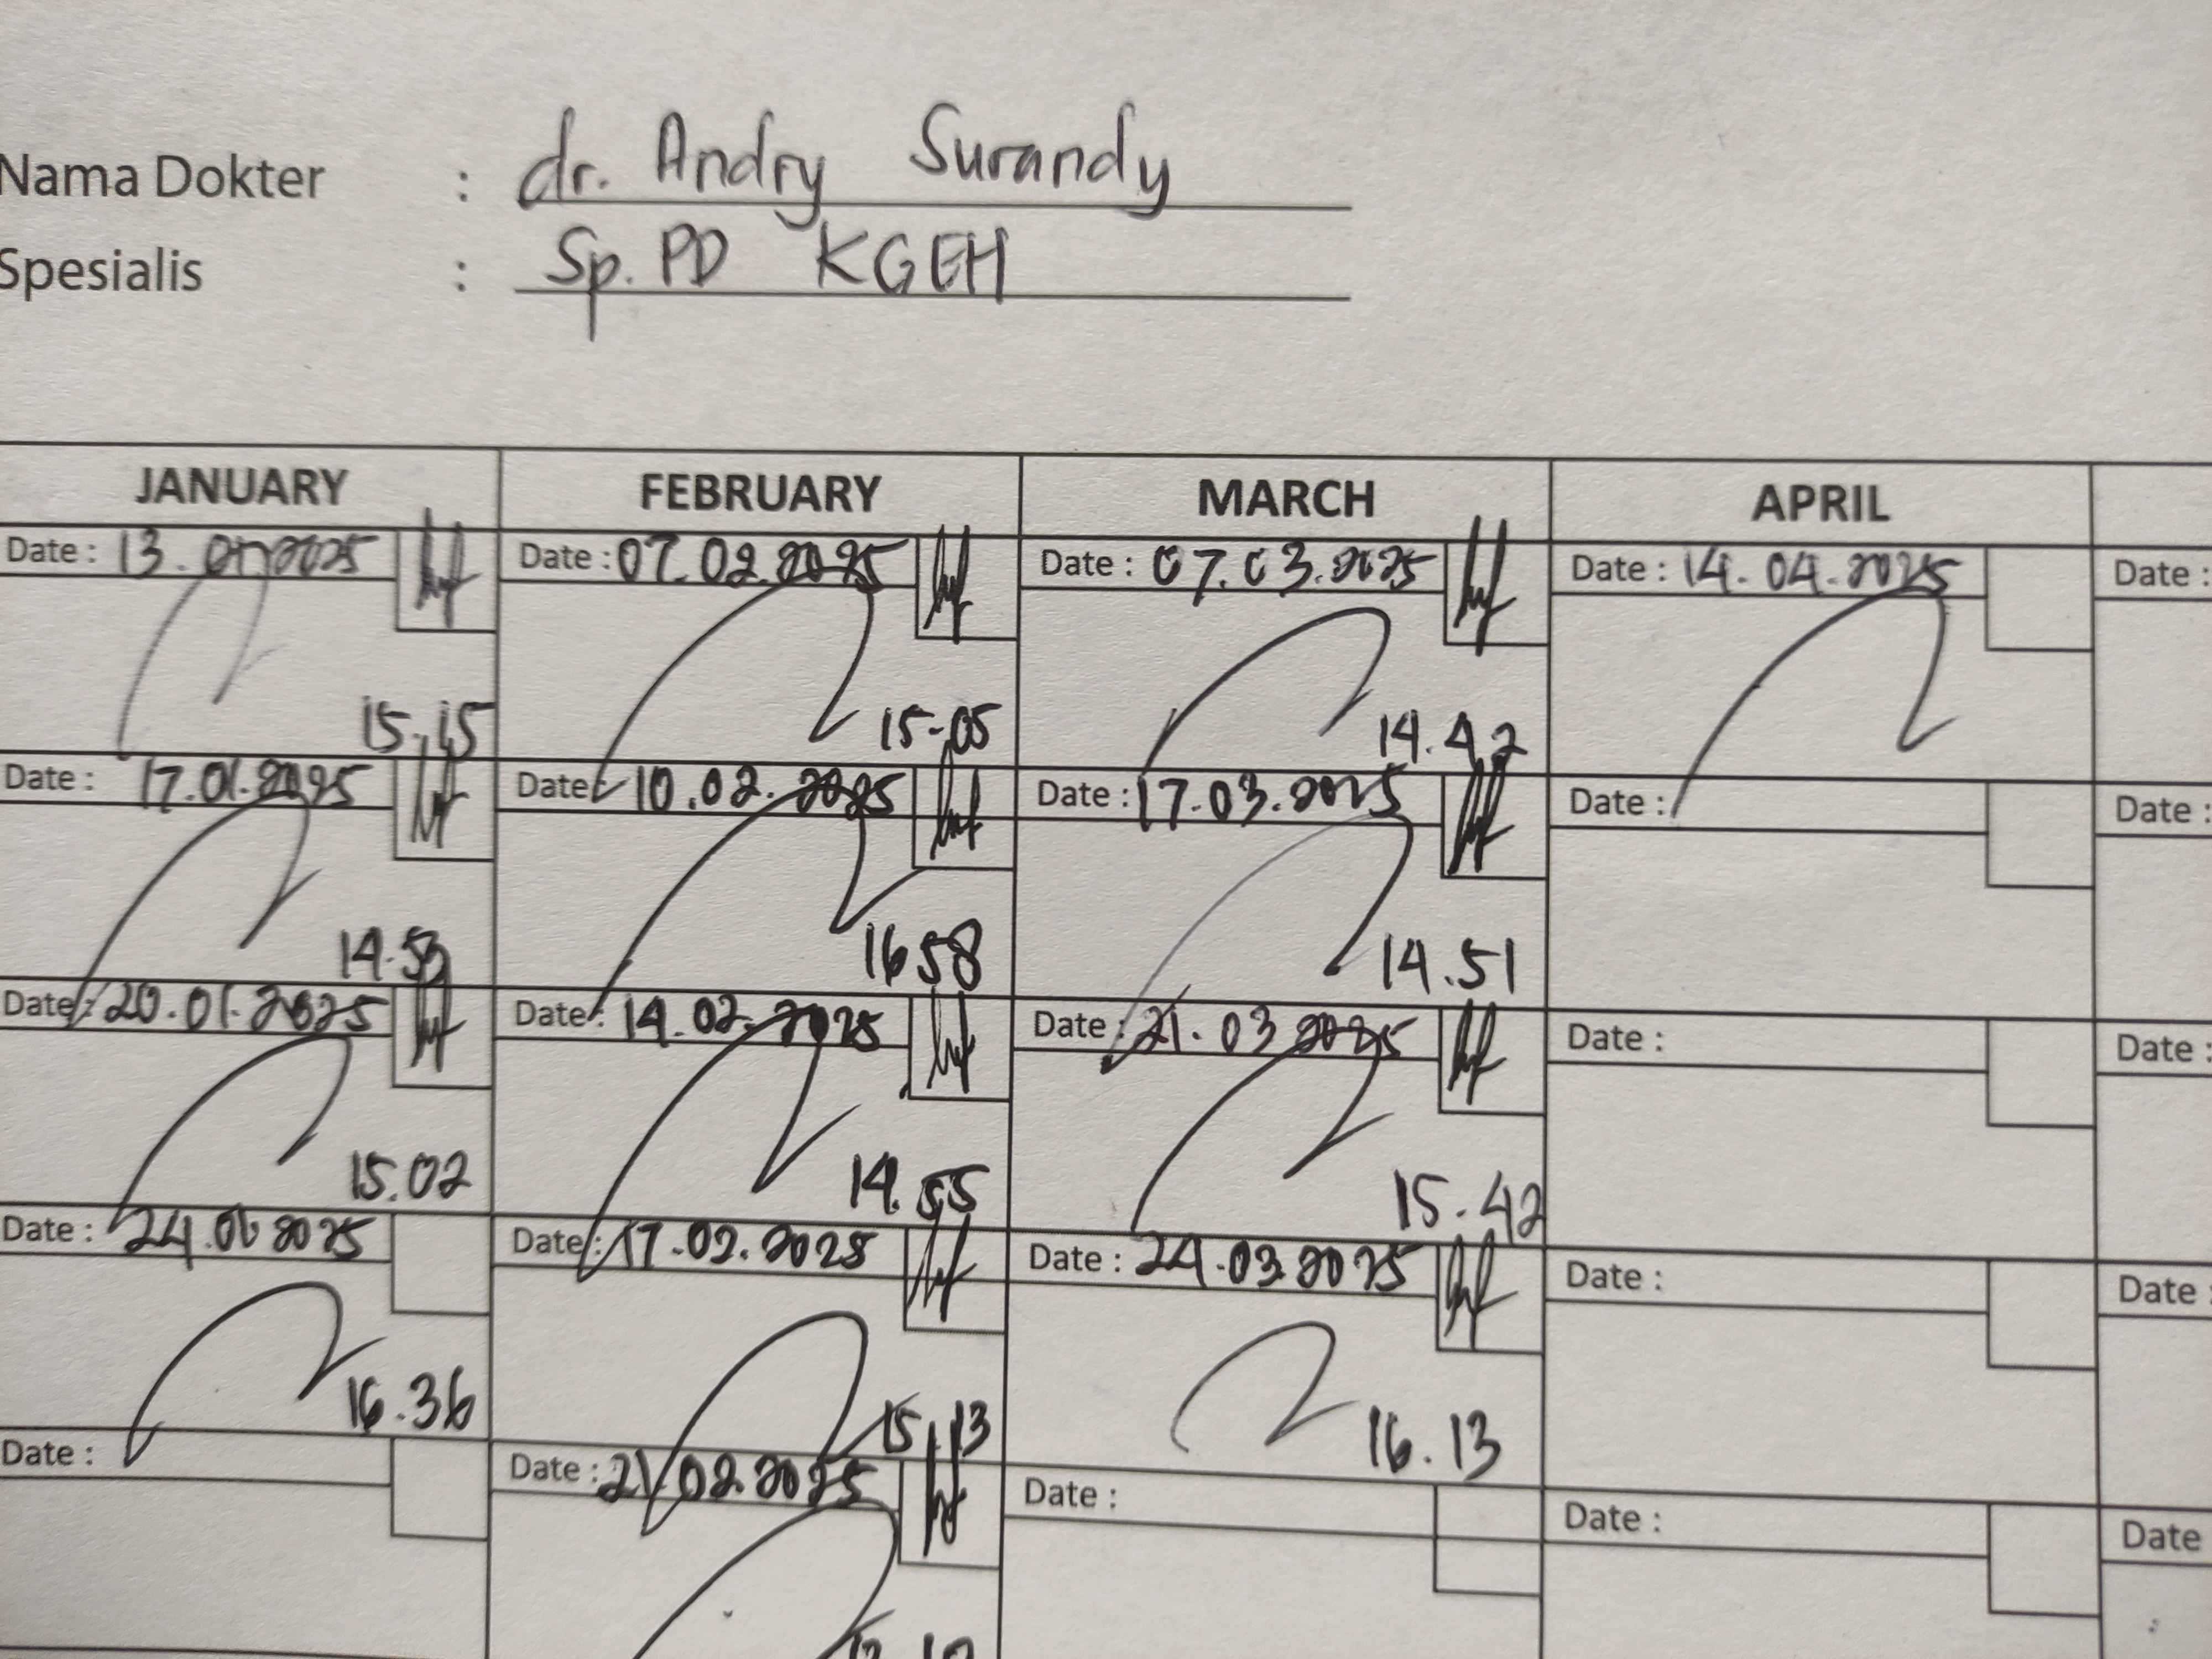 Nama Dokter : dr. Andry Surandy
Spesialis : Sp. PD KGEH
JANUARY FEBRUARY MARCH APRIL
Date : 13.01.2025 Date : 07.02.2025 Date : 07.03.2025 Date : 14.04.2025 Date :
15.15 15-05 14.42
Date : 17.01.2025 Date : 10.02.2025 Date : 17.03.2025 Date : Date :
14.53 16 58 14.51
Date : 20.01.2025 Date : 14.02.2025 Date : 21.03 2025 Date : Date :
15.02 14.55 15.42
Date : 24.01 2025 Date : 17.02.2025 Date : 24.03.2025 Date : Date :
16.36 15.13 16.13
Date : Date : 21.02.2025 Date : Date : Date